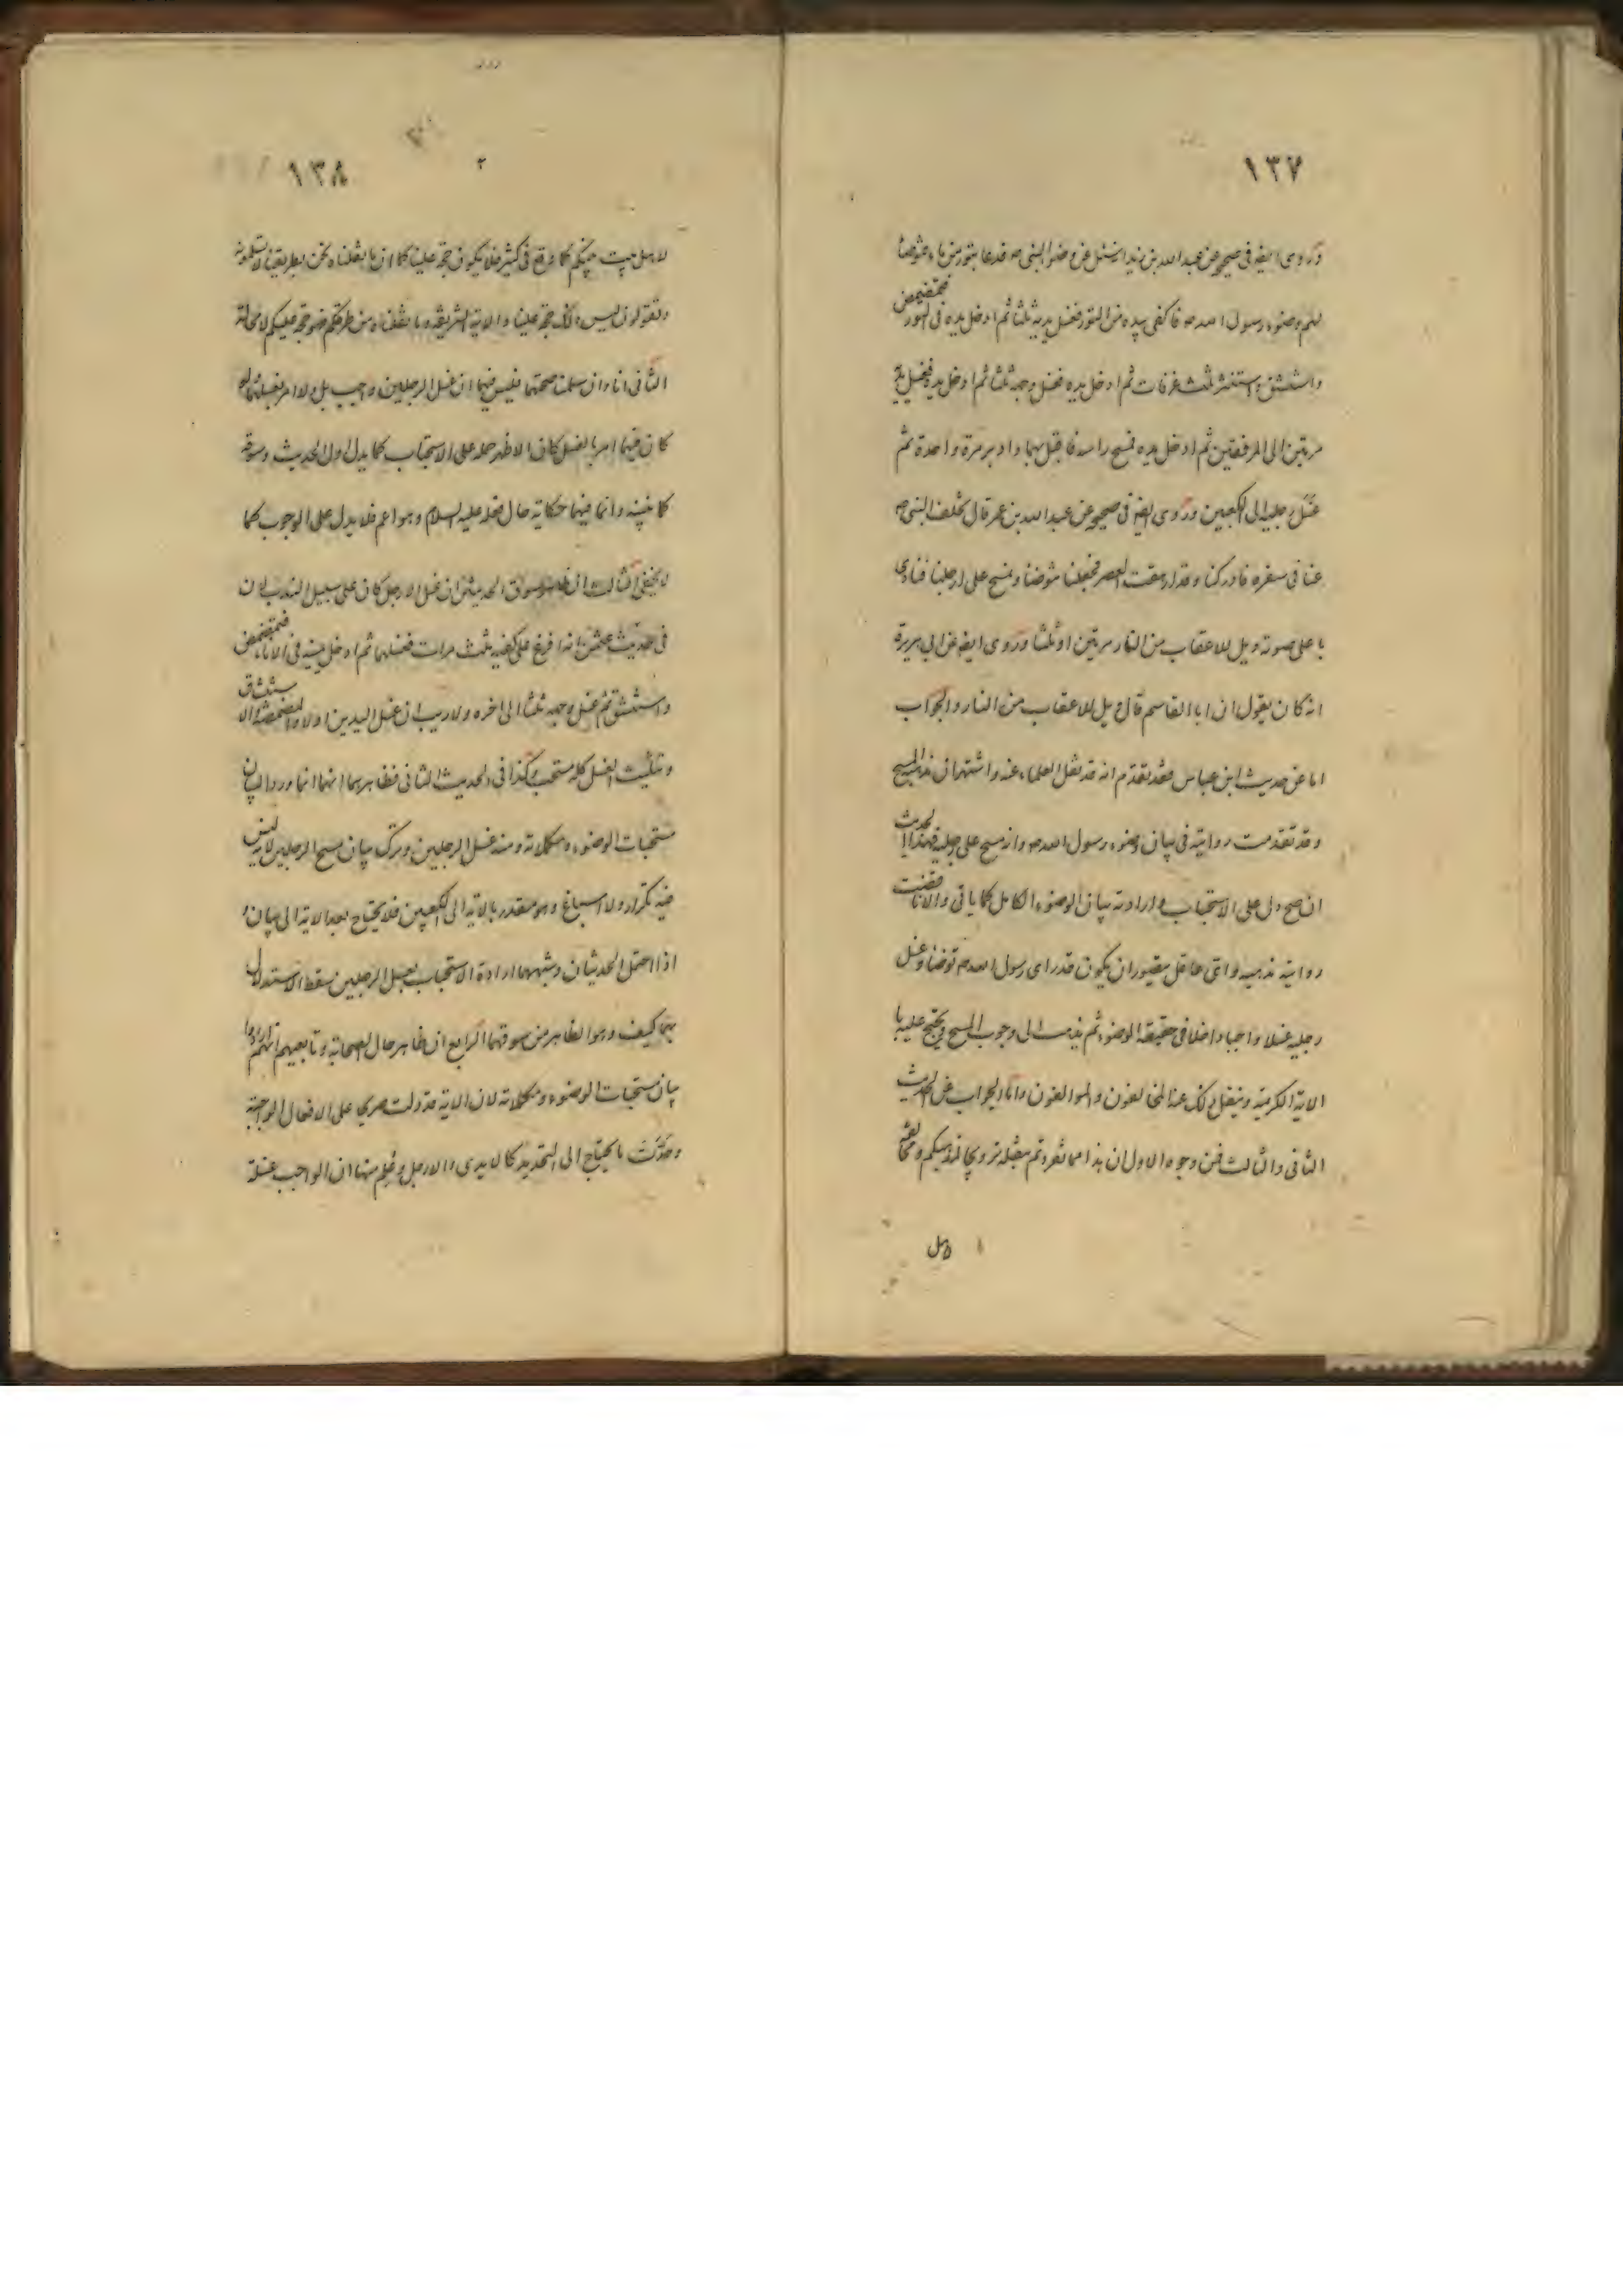 ١٣٧
وروى ايضا في صحيحه عن عبد الله بن زيد انه سئل عن وضوء النبي ص فدعا بتور من ماء فتوضأ
لهم وضوء رسول الله ص فاكفى بيده من التور فغسل يديه ثلثا ثم ادخل يده في التور فتمضمض
واستنشق واستنثر ثلث غرفات ثم ادخل يده فغسل وجهه ثلثا ثم ادخل يده فغسل يديه
مرتين الى المرفقين ثم ادخل يده فمسح راسه فاقبل بهما وادبر مرة واحدة ثم
غسل رجليه الى الكعبين وروى ايضا في صحيحه عن عبد الله بن عمر قال تخلف النبي ص
عنا في سفره فادركنا وقد ارهقت العصر فجعلنا نتوضا ونمسح على ارجلنا فنادى
باعلى صوته ويل للاعقاب من النار مرتين او ثلثا وروى ايضا عن ابي هريرة
انه كان يقول ان ابا القاسم قال ويل للاعقاب من النار والجواب
اما عن حديث ابن عباس فقد تقدم انه قد نقل العلماء عنه واشتهر ان مذهبه المسح
وقد تقدمت روايته في بيان وضوء رسول الله ص وانه مسح على رجليه فهذا الحديث
ان صح دل على الاستحباب وارادته بيان الوضوء الكامل كما ياتي والا ناقضت
روايته مذهبه واي عاقل يتصور ان يكون قد راى رسول الله ص توضا وغسل
رجليه غسلا واجبا داخلا في حقيقة الوضوء ثم يذهب الى وجوب المسح ويحتج عليه با
الاية الكريمة وينقل ذلك عنه المخالفون والموالفون واما الجواب عن الحديث
الثاني والثالث فمن وجوه الاول ان هذا مما تفردتم بنقله ترويجا لمذهبكم ومخالفته
لاهل
١٣٨
لاهل بيت نبيكم كما وقع في كثير فلا يكون حجة علينا كما ان ما نقلناه نحن بطريقنا لا تقبلونه
وتقولون ليس ذلك حجة علينا والاية الشريفة وما نقلناه من طرقكم فهو حجة عليكم لا محالة
الثاني انا وان سلمنا صحتها فليس فيها ان غسل الرجلين واجب بل ولا امر بغسلهما ولو
كان فيها امر بالغسل لكان الاظهر حمله على الاستحباب كما يدل اول الحديث وسوقه
كما نبينه وانما فيها حكاية حال فعله عليه السلام وهو اعم فلا يدل على الوجوب كما
لا يخفى الثالث ان ظاهر سوق الحديثين ان غسل الارجل كان على سبيل الندب لان
في حديث عثمن انه افرغ على كفيه ثلث مرات فغسلهما ثم ادخل يمينه في الاناء فتمضمض
واستنشق ثم غسل وجهه ثلثا الى اخره ولا ريب ان غسل اليدين اولا والمضمضة والاستنشاق
وتثليث الغسل كله مستحب وكذا في الحديث الثاني فظاهرهما انهما انما وردا لبيان
مستحبات الوضوء ومكملاته ومنه غسل الرجلين وترك بيان مسح الرجلين لانه ليس
فيه تكرار ولا اسباغ وهو مقدر بالاية الى الكعبين فلا يحتاج بعد الاية الى بيان و
اذا احتمل الحديثان وشبههما ارادة الاستحباب بغسل الرجلين سقط الاستدلال
بهما كيف وهو الظاهر من سوقهما الرابع ان ظاهر حال الصحابة وتابعيهم انهم ارادوا
بيان مستحبات الوضوء ومكملاته لان الاية قد دلت صريحا على الافعال الواجبة
وحددت ما يحتاج الى التحديد كالايدي والارجل وعلم منها ان الواجب غسلة